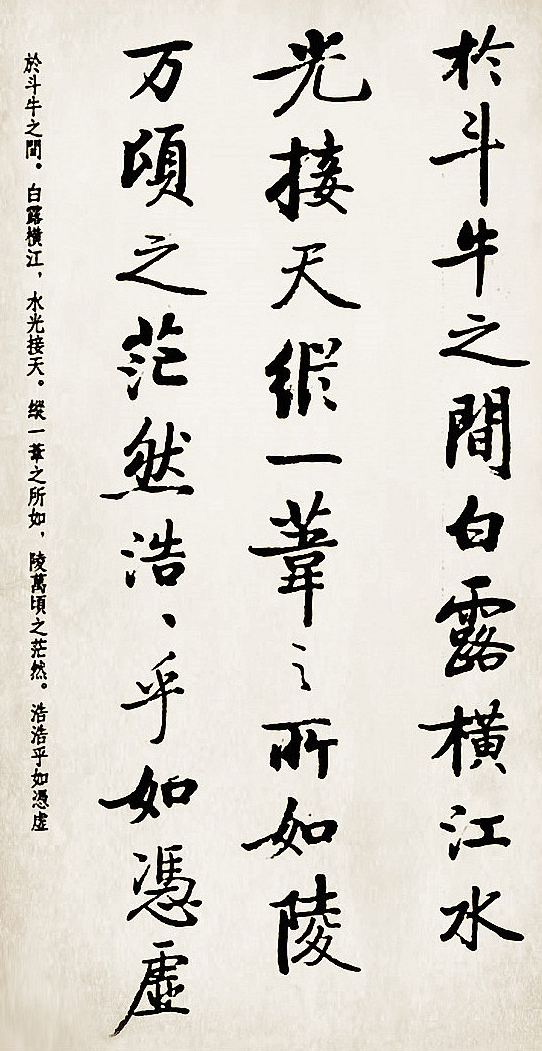 於斗牛之間白露橫江水
光接天縱一葦之所如陵
万頃之茫然浩、乎如馮虛
於斗牛之間。白露橫江，水光接天。縱一葦之所如，陵萬頃之茫然。浩浩乎如憑虛